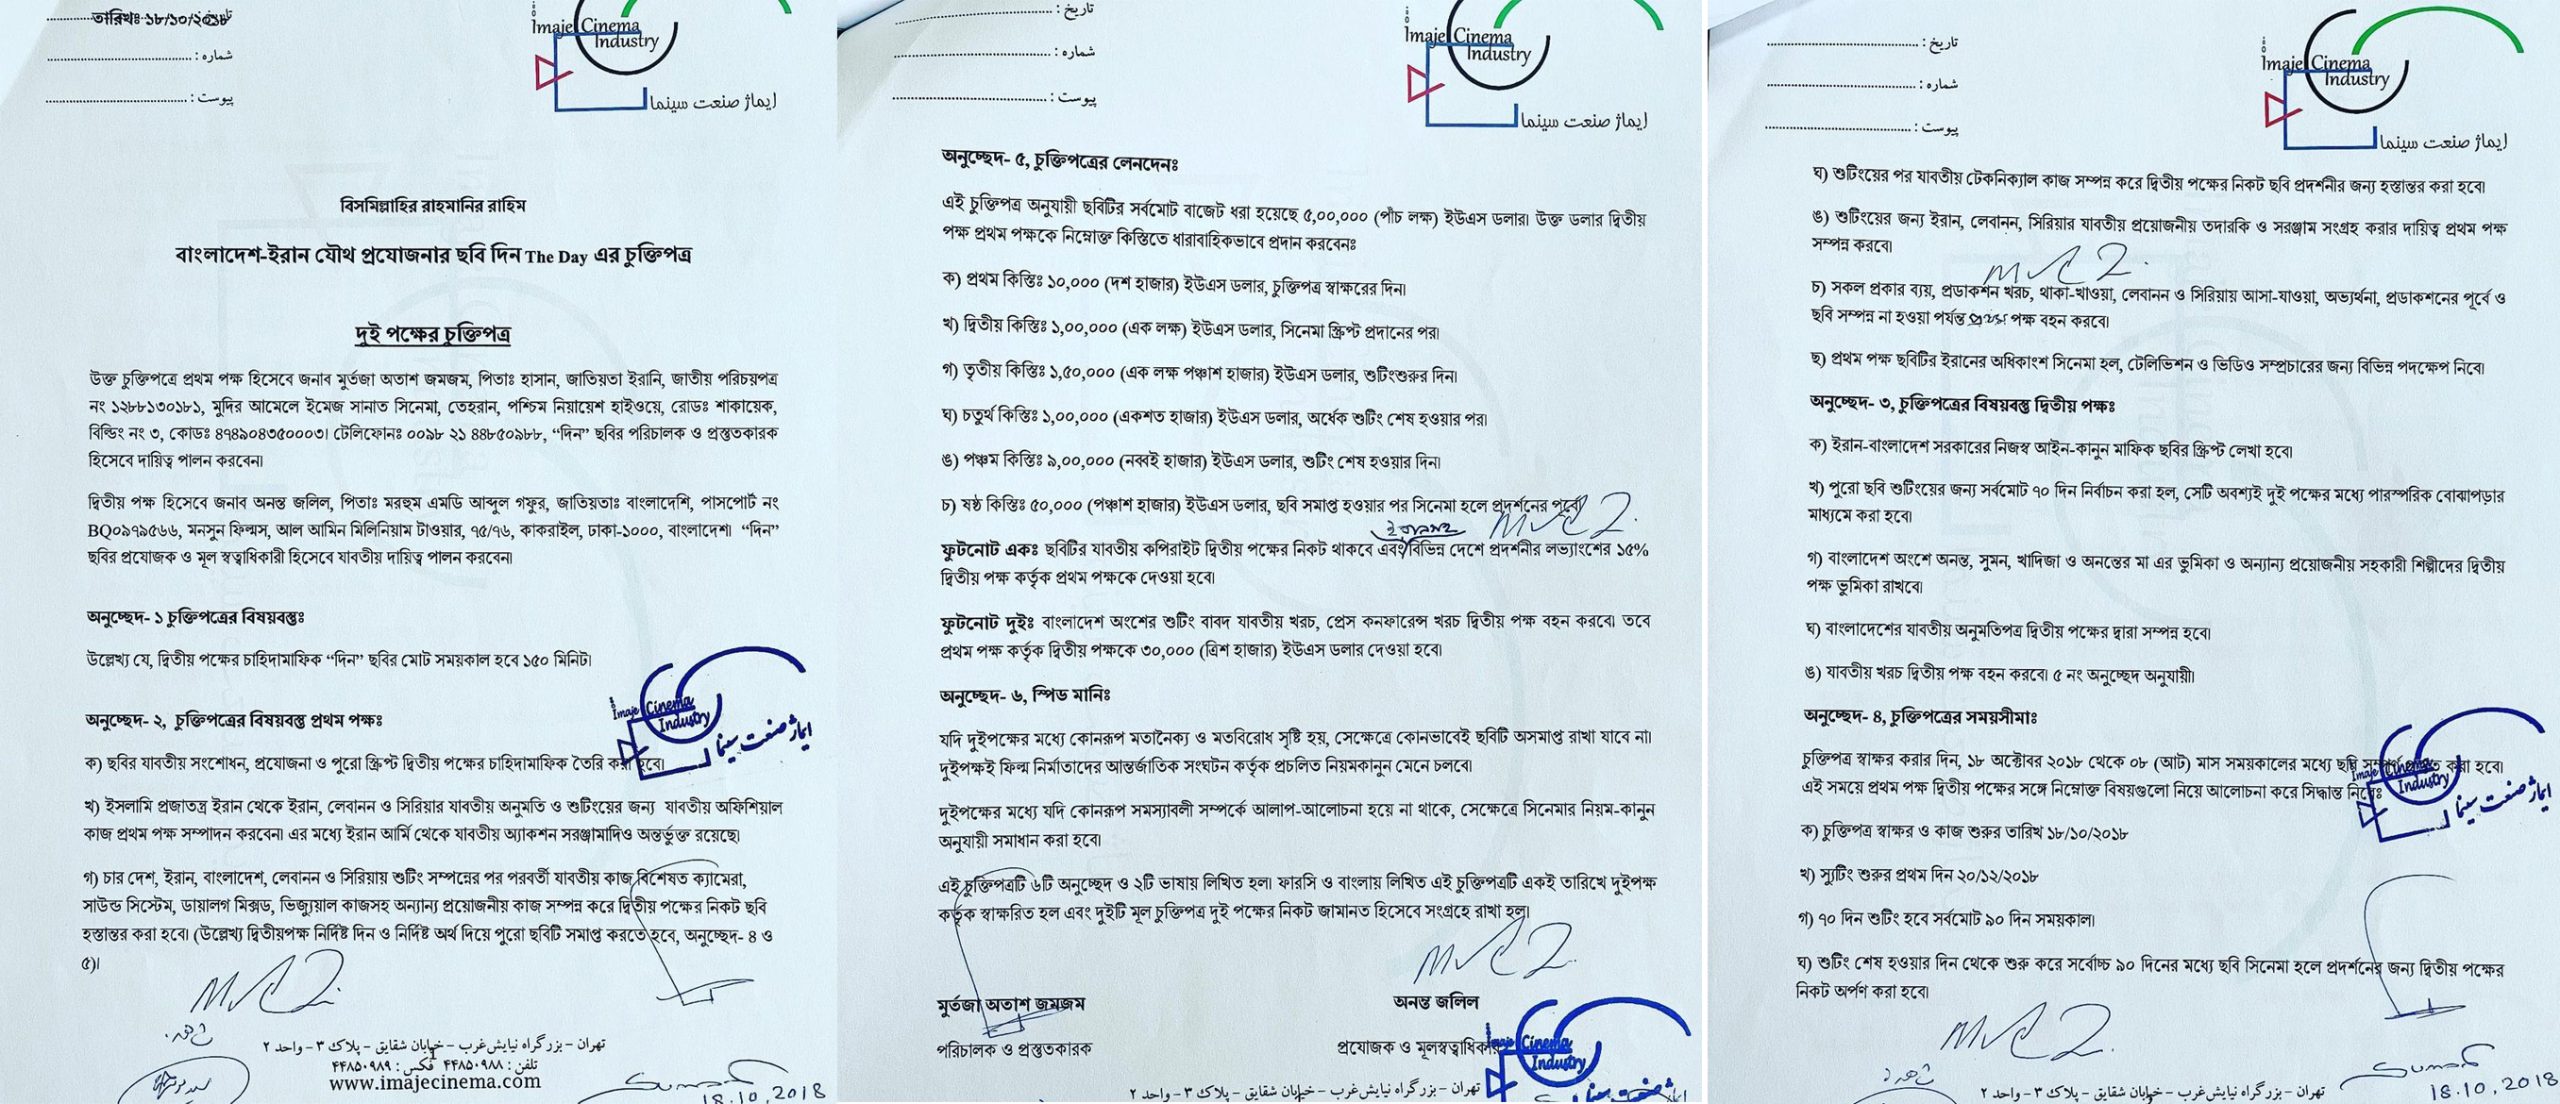 তারিখঃ ১৮/১০/২০১৮
شماره :
پیوست :
Imaje Cinema
Industry
ایماژ صنعت سینما
বিসমিল্লাহির রাহমানির রাহিম
বাংলাদেশ-ইরান যৌথ প্রযোজনার ছবি দিন The Day এর চুক্তিপত্র
দুই পক্ষের চুক্তিপত্র
উক্ত চুক্তিপত্রে প্রথম পক্ষ হিসেবে জনাব মুর্তজা অতাশ জমজম, পিতাঃ হাসান, জাতিয়তা ইরানি, জাতীয় পরিচয়পত্র
নং ১২৮৮১৩০১৮১, মুদির আমেলে ইমেজ সানাত সিনেমা, তেহরান, পশ্চিম নিয়ায়েশ হাইওয়ে, রোডঃ শাকায়েক,
বিল্ডিং নং ৩, কোডঃ ৪৭৪৯০৪৩৫০০০৩। টেলিফোনঃ ০০৯৮ ২১ ৪৪৮৫০৯৮৮, “দিন” ছবির পরিচালক ও প্রস্তুতকারক
হিসেবে দায়িত্ব পালন করবেন।
দ্বিতীয় পক্ষ হিসেবে জনাব অনন্ত জলিল, পিতাঃ মরহুম এমডি আব্দুল গফুর, জাতিয়তাঃ বাংলাদেশি, পাসপোর্ট নং
BQ০৯৭৯৫৬৬, মনসুন ফিল্মস, আল আমিন মিলিনিয়াম টাওয়ার, ৭৫/৭৬, কাকরাইল, ঢাকা-১০০০, বাংলাদেশ। “দিন”
ছবির প্রযোজক ও মূল স্বত্বাধিকারী হিসেবে যাবতীয় দায়িত্ব পালন করবেন।
অনুচ্ছেদ- ১ চুক্তিপত্রের বিষয়বস্তুঃ
উল্লেখ্য যে, দ্বিতীয় পক্ষের চাহিদামাফিক “দিন” ছবির মোট সময়কাল হবে ১৫০ মিনিট।
অনুচ্ছেদ- ২, চুক্তিপত্রের বিষয়বস্তু প্রথম পক্ষঃ
ক) ছবির যাবতীয় সংশোধন, প্রযোজনা ও পুরো স্ক্রিপ্ট দ্বিতীয় পক্ষের চাহিদামাফিক তৈরি করা হবে।
খ) ইসলামি প্রজাতন্ত্র ইরান থেকে ইরান, লেবানন ও সিরিয়ার যাবতীয় অনুমতি ও শুটিংয়ের জন্য যাবতীয় অফিশিয়াল
কাজ প্রথম পক্ষ সম্পাদন করবেন। এর মধ্যে ইরান আর্মি থেকে যাবতীয় অ্যাকশন সরঞ্জামাদিও অন্তর্ভুক্ত রয়েছে।
গ) চার দেশ, ইরান, বাংলাদেশ, লেবানন ও সিরিয়ায় শুটিং সম্পন্নের পর পরবর্তী যাবতীয় কাজ বিশেষত ক্যামেরা,
সাউন্ড সিস্টেম, ডায়ালগ মিক্সড, ভিজ্যুয়াল কাজসহ অন্যান্য প্রয়োজনীয় কাজ সম্পন্ন করে দ্বিতীয় পক্ষের নিকট ছবি
হস্তান্তর করা হবে। (উল্লেখ্য দ্বিতীয়পক্ষ নির্দিষ্ট দিন ও নির্দিষ্ট অর্থ দিয়ে পুরো ছবিটি সমাপ্ত করতে হবে, অনুচ্ছেদ- ৪ ও
৫)।
تهران – بزرگراه نیایش غرب – خیابان شقایق – پلاک ۳ – واحد ۲
تلفن : ۴۴۸۵۰۹۸۸ فکس : ۴۴۸۵۰۹۸۹
www.imajecinema.com
18.10.2018
تاریخ :
شماره :
پیوست :
Imaje Cinema
Industry
ایماژ صنعت سینما
অনুচ্ছেদ- ৫, চুক্তিপত্রের লেনদেনঃ
এই চুক্তিপত্র অনুযায়ী ছবিটির সর্বমোট বাজেট ধরা হয়েছে ৫,০০,০০০ (পাঁচ লক্ষ) ইউএস ডলার। উক্ত ডলার দ্বিতীয়
পক্ষ প্রথম পক্ষকে নিম্নোক্ত কিস্তিতে ধারাবাহিকভাবে প্রদান করবেনঃ
ক) প্রথম কিস্তিঃ ১০,০০০ (দশ হাজার) ইউএস ডলার, চুক্তিপত্র স্বাক্ষরের দিন।
খ) দ্বিতীয় কিস্তিঃ ১,০০,০০০ (এক লক্ষ) ইউএস ডলার, সিনেমা স্ক্রিপ্ট প্রদানের পর।
গ) তৃতীয় কিস্তিঃ ১,৫০,০০০ (এক লক্ষ পঞ্চাশ হাজার) ইউএস ডলার, শুটিংশুরুর দিন।
ঘ) চতুর্থ কিস্তিঃ ১,০০,০০০ (একশত হাজার) ইউএস ডলার, অর্ধেক শুটিং শেষ হওয়ার পর।
ঙ) পঞ্চম কিস্তিঃ ৯,০০,০০০ (নব্বই হাজার) ইউএস ডলার, শুটিং শেষ হওয়ার দিন।
চ) ষষ্ঠ কিস্তিঃ ৫০,০০০ (পঞ্চাশ হাজার) ইউএস ডলার, ছবি সমাপ্ত হওয়ার পর সিনেমা হলে প্রদর্শনের পূর্বে।
ফুটনোট একঃ ছবিটির যাবতীয় কপিরাইট দ্বিতীয় পক্ষের নিকট থাকবে এবং বিভিন্ন দেশে প্রদর্শনীর লভ্যাংশের ১৫%
দ্বিতীয় পক্ষ কর্তৃক প্রথম পক্ষকে দেওয়া হবে।
ফুটনোট দুইঃ বাংলাদেশ অংশের শুটিং বাবদ যাবতীয় খরচ, প্রেস কনফারেন্স খরচ দ্বিতীয় পক্ষ বহন করবে। তবে
প্রথম পক্ষ কর্তৃক দ্বিতীয় পক্ষকে ৩০,০০০ (ত্রিশ হাজার) ইউএস ডলার দেওয়া হবে।
অনুচ্ছেদ- ৬, স্পিড মানিঃ
যদি দুইপক্ষের মধ্যে কোনরূপ মতানৈক্য ও মতবিরোধ সৃষ্টি হয়, সেক্ষেত্রে কোনভাবেই ছবিটি অসমাপ্ত রাখা যাবে না।
দুইপক্ষই ফিল্ম নির্মাতাদের আন্তর্জাতিক সংঘটন কর্তৃক প্রচলিত নিয়মকানুন মেনে চলবে।
দুইপক্ষের মধ্যে যদি কোনরূপ সমস্যাবলী সম্পর্কে আলাপ-আলোচনা হয়ে না থাকে, সেক্ষেত্রে সিনেমার নিয়ম-কানুন
অনুযায়ী সমাধান করা হবে।
এই চুক্তিপত্রটি ৬টি অনুচ্ছেদ ও ২টি ভাষায় লিখিত হল। ফারসি ও বাংলায় লিখিত এই চুক্তিপত্রটি একই তারিখে দুইপক্ষ
কর্তৃক স্বাক্ষরিত হল এবং দুইটি মূল চুক্তিপত্র দুই পক্ষের নিকট জামানত হিসেবে সংগ্রহে রাখা হল।
মুর্তজা অতাশ জমজম
অনন্ত জলিল
পরিচালক ও প্রস্তুতকারক
প্রযোজক ও মূলস্বত্বাধিকারি
تهران – بزرگراه نیایش غرب – خیابان شقایق – پلاک ۳ – واحد ۲
تاریخ :
شماره :
پیوست :
Imaje Cinema
Industry
ایماژ صنعت سینما
ঘ) শুটিংয়ের পর যাবতীয় টেকনিক্যাল কাজ সম্পন্ন করে দ্বিতীয় পক্ষের নিকট ছবি প্রদর্শনীর জন্য হস্তান্তর করা হবে।
ঙ) শুটিংয়ের জন্য ইরান, লেবানন, সিরিয়ার যাবতীয় প্রয়োজনীয় তদারকি ও সরঞ্জাম সংগ্রহ করার দায়িত্ব প্রথম পক্ষ
সম্পন্ন করবে।
চ) সকল প্রকার ব্যয়, প্রডাকশন খরচ, থাকা-খাওয়া, লেবানন ও সিরিয়ায় আসা-যাওয়া, অভ্যর্থনা, প্রডাকশনের পূর্বে ও
ছবি সম্পন্ন না হওয়া পর্যন্ত প্রথম পক্ষ বহন করবে।
ছ) প্রথম পক্ষ ছবিটির ইরানের অধিকাংশ সিনেমা হল, টেলিভিশন ও ভিডিও সম্প্রচারের জন্য বিভিন্ন পদক্ষেপ নিবে।
অনুচ্ছেদ- ৩, চুক্তিপত্রের বিষয়বস্তু দ্বিতীয় পক্ষঃ
ক) ইরান-বাংলাদেশ সরকারের নিজস্ব আইন-কানুন মাফিক ছবির স্ক্রিপ্ট লেখা হবে।
খ) পুরো ছবি শুটিংয়ের জন্য সর্বমোট ৭০ দিন নির্বাচন করা হল, সেটি অবশ্যই দুই পক্ষের মধ্যে পারস্পরিক বোঝাপড়ার
মাধ্যমে করা হবে।
গ) বাংলাদেশ অংশে অনন্ত, সুমন, খাদিজা ও অনন্তের মা এর ভুমিকা ও অন্যান্য প্রয়োজনীয় সহকারী শিল্পীদের দ্বিতীয়
পক্ষ ভুমিকা রাখবে।
ঘ) বাংলাদেশের যাবতীয় অনুমতিপত্র দ্বিতীয় পক্ষের দ্বারা সম্পন্ন হবে।
ঙ) যাবতীয় খরচ দ্বিতীয় পক্ষ বহন করবে। ৫ নং অনুচ্ছেদ অনুযায়ী।
অনুচ্ছেদ- ৪, চুক্তিপত্রের সময়সীমাঃ
চুক্তিপত্র স্বাক্ষর করার দিন, ১৮ অক্টোবর ২০১৮ থেকে ০৮ (আট) মাস সময়কালের মধ্যে ছবি করা হবে।
এই সময়ে প্রথম পক্ষ দ্বিতীয় পক্ষের সঙ্গে নিম্নোক্ত বিষয়গুলো নিয়ে আলোচনা করে সিদ্ধান্ত নিবেঃ
ক) চুক্তিপত্র স্বাক্ষর ও কাজ শুরুর তারিখ ১৮/১০/২০১৮
খ) স্যুটিং শুরুর প্রথম দিন ২০/১২/২০১৮
গ) ৭০ দিন শুটিং হবে সর্বমোট ৯০ দিন সময়কাল।
ঘ) শুটিং শেষ হওয়ার দিন থেকে শুরু করে সর্বোচ্চ ৯০ দিনের মধ্যে ছবি সিনেমা হলে প্রদর্শনের জন্য দ্বিতীয় পক্ষের
নিকট অর্পণ করা হবে।
تهران – بزرگراه نیایش غرب – خیابان شقایق – پلاک ۳ – واحد ۲
18.10.2018